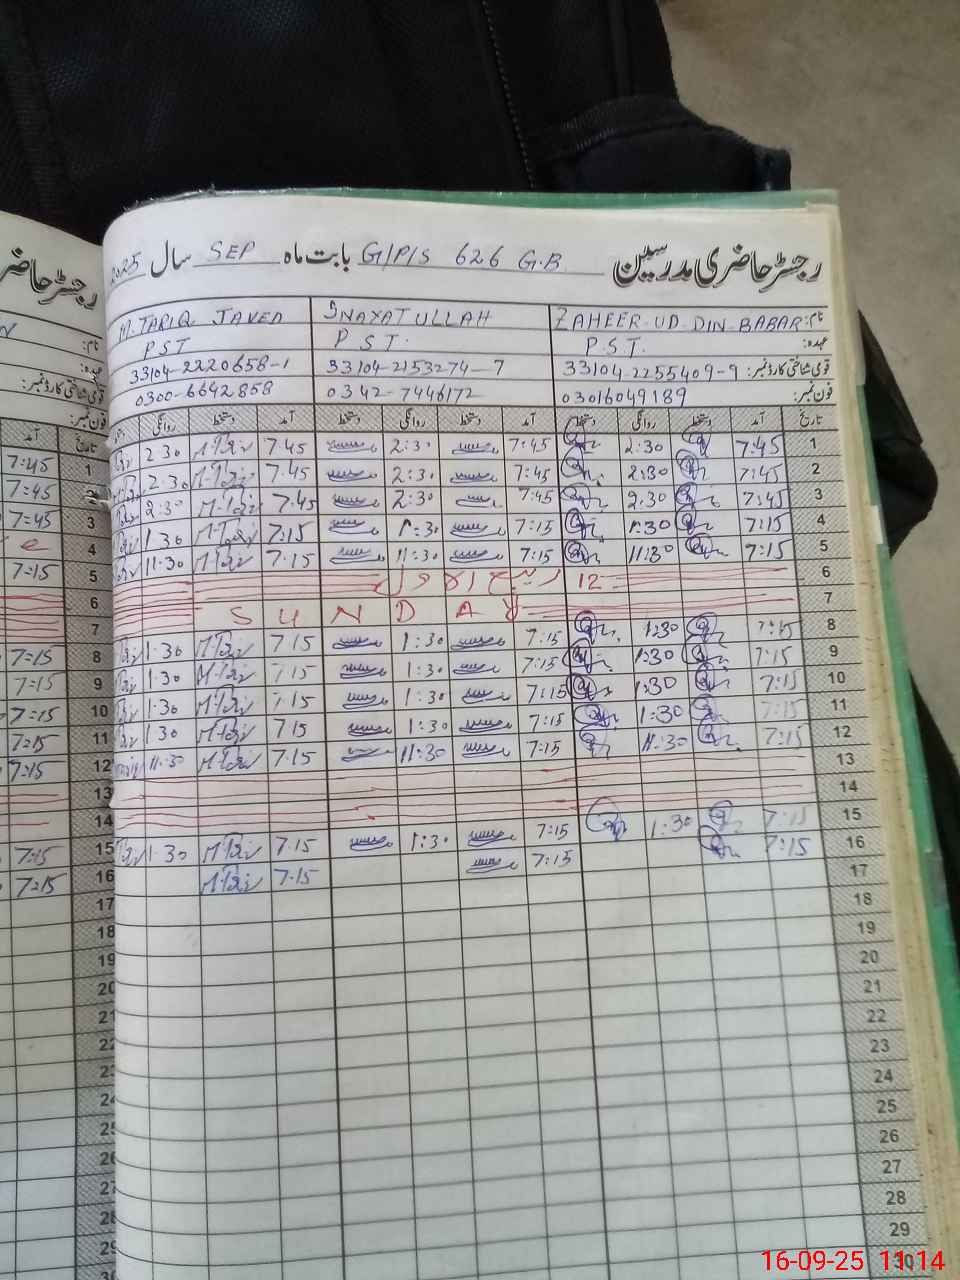 رجسٹر حاضری مدرسین G/P/S 626 G.B بابت ماہ SEP سال 2025
نام: ZAHEER-UD-DIN-BABAR INAYATULLAH M.TARIQ JAVED
عہدہ: P.S.T. P.S.T. PST
قومی شناختی کارڈ نمبر: 33104-2255409-9 33104-2153274-7 33104-2220658-1
فون نمبر: 03016049189 0342-7446172 0300-6642858
تاریخ آمد دستخط روانگی دستخط آمد دستخط روانگی دستخط آمد دستخط روانگی
1 7:45 2:30 7:45 2:30 7.45 M.Tariq 2.30
2 7:45 2:30 7:45 2:30 7.45 M.Tariq 2.30
3 7:45 2:30 7:45 2:30 7.45 M.Tariq 2:30
4 7:15 1:30 7:15 1:30 7:15 M.Tariq 1.30
5 7:15 11:30 7:15 11:30 7.15 M.Tariq 11.30
6 12 ربیع الاول
7 SUNDAY
8 7:15 1:30 7:15 1:30 7.15 M.Tariq 1.30
9 7:15 1:30 7:15 1:30 7.15 M.Tariq 1.30
10 7:15 1:30 7:15 1:30 7.15 M.Tariq 1.30
11 7:15 1:30 7:15 1:30 7.15 M.Tariq 1.30
12 7:15 11:30 7:15 11:30 7.15 M.Tariq 11.30
13
14
15 7:15 1:30 7:15 1:30 7.15 M.Tariq 1.30
16 7:15 7:15 7.15 M.Tariq
17
18
19
20
21
22
23
24
25
26
27
28
29
30
رجسٹر حاضر
نام:
عہدہ:
قومی شناختی کارڈ نمبر:
فون نمبر:
تاریخ آمد
1 7:45
2 7:45
3 7=45
4
5 7=15
6
7
8 7=15
9 7=15
10 7=15
11 7=15
12 7=15
13
14
15 7=15
16 7=15
17
18
19
20
21
22
23
24
25
26
27
28
29
16-09-25 11:14